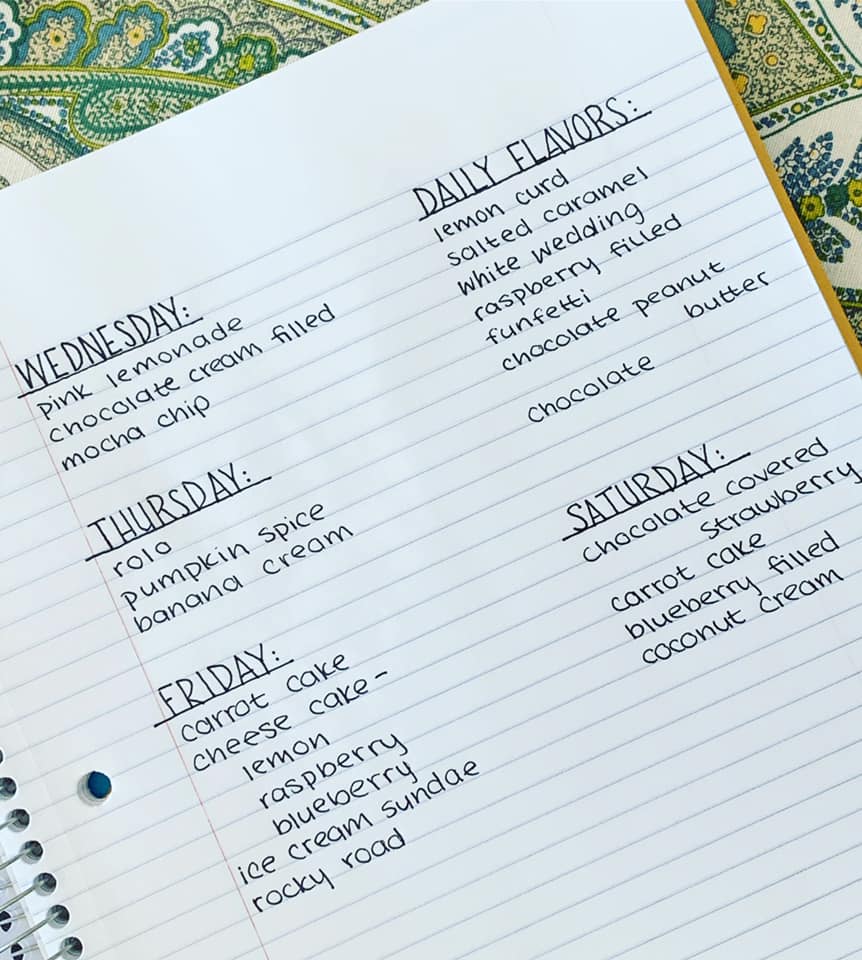 WEDNESDAY:
pink lemonade
chocolate cream filled
mocha chip
THURSDAY:
rolo
pumpkin spice
banana cream
FRIDAY:
carrot cake
cheese cake -
lemon
raspberry
blueberry
ice cream sundae
rocky road
DAILY FLAVORS:
lemon curd
salted caramel
white wedding
raspberry filled
funfetti
chocolate peanut
butter
chocolate
SATURDAY:
chocolate covered
strawberry
carrot cake
blueberry filled
coconut cream